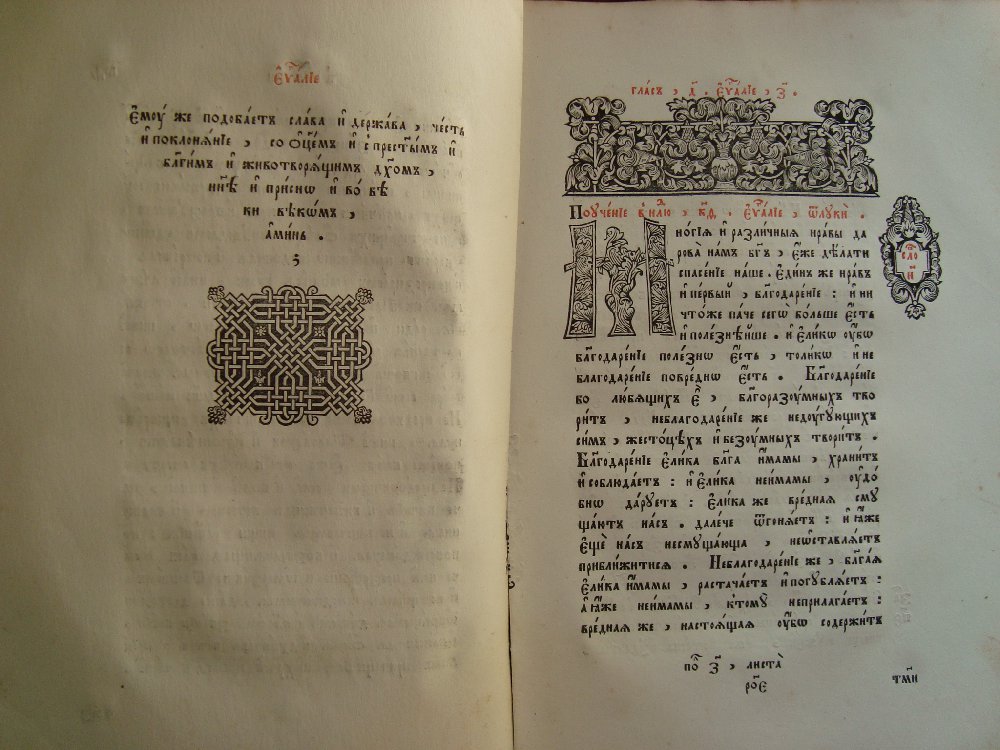 є҆ѵⷢ҇аліе
Е҆моу же подоба́етъ сла́ва и҆ держа́ва , че́сть
и҆ поклонѧ́ніе , со ѻ҆ц҃емъ и҆ с прест҃ымъ и҆
бл҃ги́мъ и҆ животворѧ́щимъ дх҃омъ ,
ни҃нѣ и҆ при́снѡ и҆ во́ вѣ
ки вѣкѡ́мъ ,
а҆ми́нь .
гла́съ , д҃ . є҆ѵⷢ҇а́ліе , з҃ .
Поуче́ніе в нⷣлю , к҃д . є҆ѵⷢ҇а́ліе , ѿ лꙋки̑ .
Мно́гїѧ и҆ разли́чныѧ нра́вы да
рова̀ на́мъ бг҃ъ , є҆́же дѣ́лати
спасе́нїе на́ше . є҆ди́нъ же нра́въ
и҆ пе́рвый , бл҃годаре́нїе : и҆ ни
что́же па́че сегѡ̀ бо́льше є҆́сть
и҆ поле́знѣйше . и҆ є҆ли́кѡ ᲂу҆́бѡ
бл҃годаре́нїе поле́знѡ є҆́сть , толи́кѡ и҆ не
благодаре́нїе повре́днѡ є҆́сть . Бл҃годаре́нїе
бо лю́бѧщихъ є҆̀ , благоразᲂу́мныхъ тво
ри́тъ , неблагодаре́нїе же недꙋ́гꙋющихъ
си́мъ , жесто́цѣхъ и҆ безꙋ́мныхъ твори́тъ .
Бл҃годаре́нїе є҆ли́ка бл҃га̑ и҆́мамы , храни́тъ
и҆ соблюда́етъ : и҆ є҆ли́ка неи́мамы , ᲂу҆до́
бнѡ да́рꙋетъ : є҆ли́ка же вре́днаѧ смꙋ
ща́ютъ на́съ . дале́че ѿгонѧ́етъ : и҆ ꙗ҆́же
є҆щѐ на́съ несмꙋща́юща , неѡ҆ставлѧ́етъ
прибли́житисѧ . Неблагодаре́нїе же , бл҃га́ѧ
є҆ли́ка и҆́мамы , растача́етъ и҆ погꙋблѧ́етъ :
а҆ ꙗ҆́же неи́мамы , к томꙋ̀ неприлага́етъ :
вре́днаѧ же , настоѧ́щаѧ ᲂу҆́бѡ содержи́тъ
сло
и҃
поⷣ з҃ , листа̀
ро҃е
тм҃и